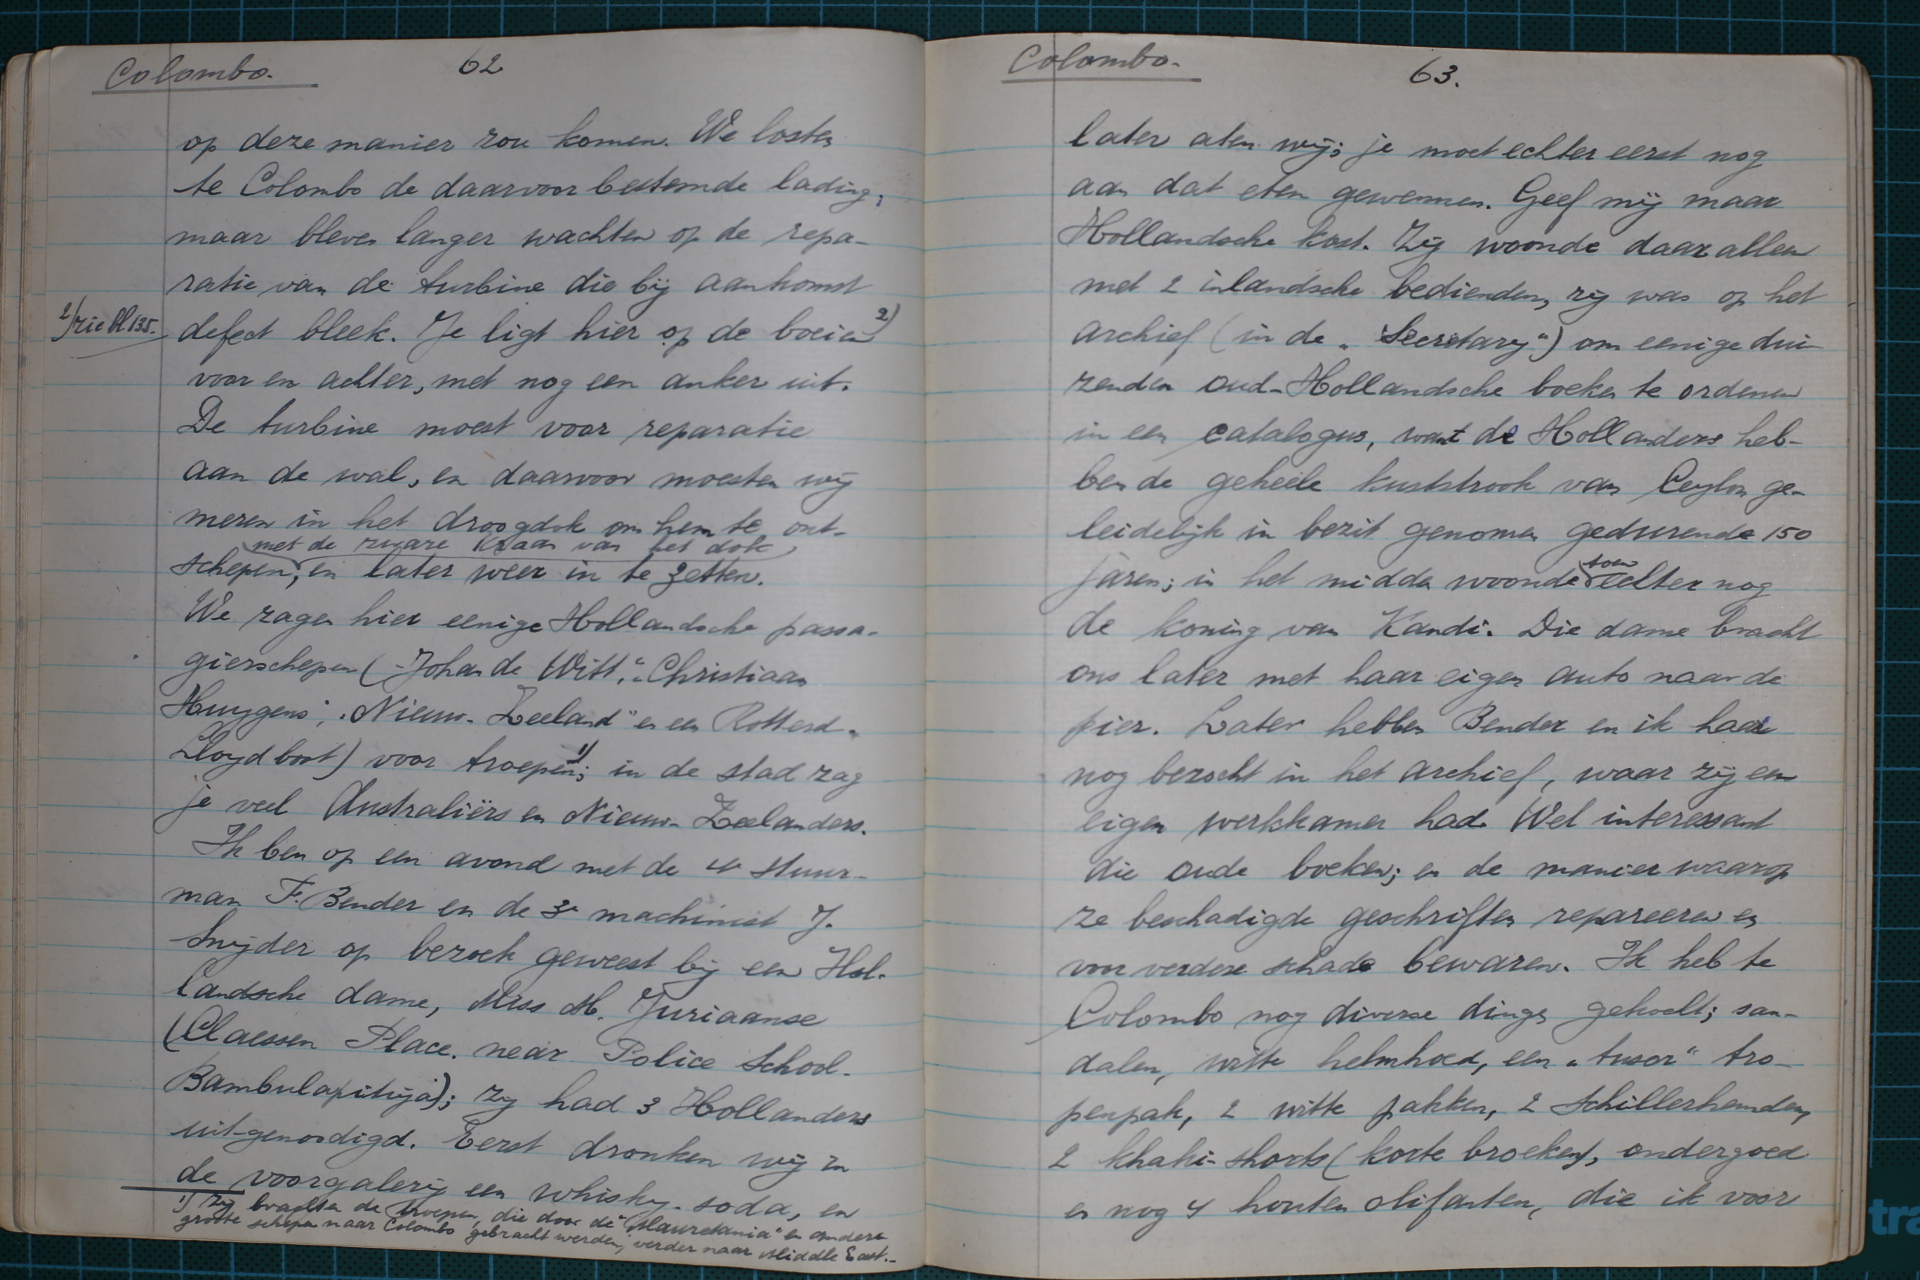 Colombo.
62
op deze manier zou komen. We losten
te Colombo de daarvoor bestemde lading,
maar bleven langer wachten op de repa-
ratie van de turbine die bij aankomst
2) zie bl. 135.
defect bleek. Je ligt hier op de boeien 2)
voor en achter, met nog een anker uit.
De turbine moest voor reparatie
aan de wal, en daarvoor moesten wij
meren in het droogdok om hem te ont-
met de zware kraan van het dok
schepen, en later weer in te zetten.
We zagen hier eenige Hollandsche passa-
gierschepen ("Johan de Witt", "Christiaan
Huygens", "Nieuw-Zeeland" en een Rotterd.
Lloyd boot) voor troepen 1); in de stad zag
je veel Australiërs en Nieuw-Zeelanders.
Ik ben op een avond met de 4e stuur-
man F. Bender en de 3e machinist J.
Snijder op bezoek geweest bij een Hol-
landsche dame, Miss M. Juriaanse
(Claessen Place. near Police School-
Bambulapitiya); zij had 3 Hollanders
uitgenoodigd. Eerst dronken wij in
de voorgalerij een whisky-soda, en
1) Zij brachten de troepen, die door de "Mauretania" en andere
groote schepen naar Colombo gebracht werden, verder naar Middle East.
Colombo.
63.
later aten wij; je moet echter eerst nog
aan dat eten gewennen. Geef mij maar
Hollandsche kost. Zij woonde daar alleen
met 2 inlandsche bedienden, zij was op het
archief (in de "Secretary") om eenige dui-
zenden oud-Hollandsche boeken te ordenen
in een catalogus, want de Hollanders heb-
ben de geheele kuststrook van Ceylon ge-
leidelijk in bezit genomen gedurende 150
jaren; in het midden woonde toen echter nog
de koning van Kandi. Die dame bracht
ons later met haar eigen auto naar de
pier. Later hebben Bender en ik haar
nog bezocht in het archief, waar zij een
eigen werkkamer had. Wel interessant
die oude boeken; en de manier waarop
ze beschadigde geschriften repareeren en
voor verdere schade bewaren. Ik heb te
Colombo nog diverse dingen gekocht; san-
dalen, witte helmhoed, een "tusor" tro-
penpak, 2 witte pakken, 2 Schillerhemden,
2 khaki-shorts (korte broeken), ondergoed
en nog 4 houten olifanten, die ik voor
tra